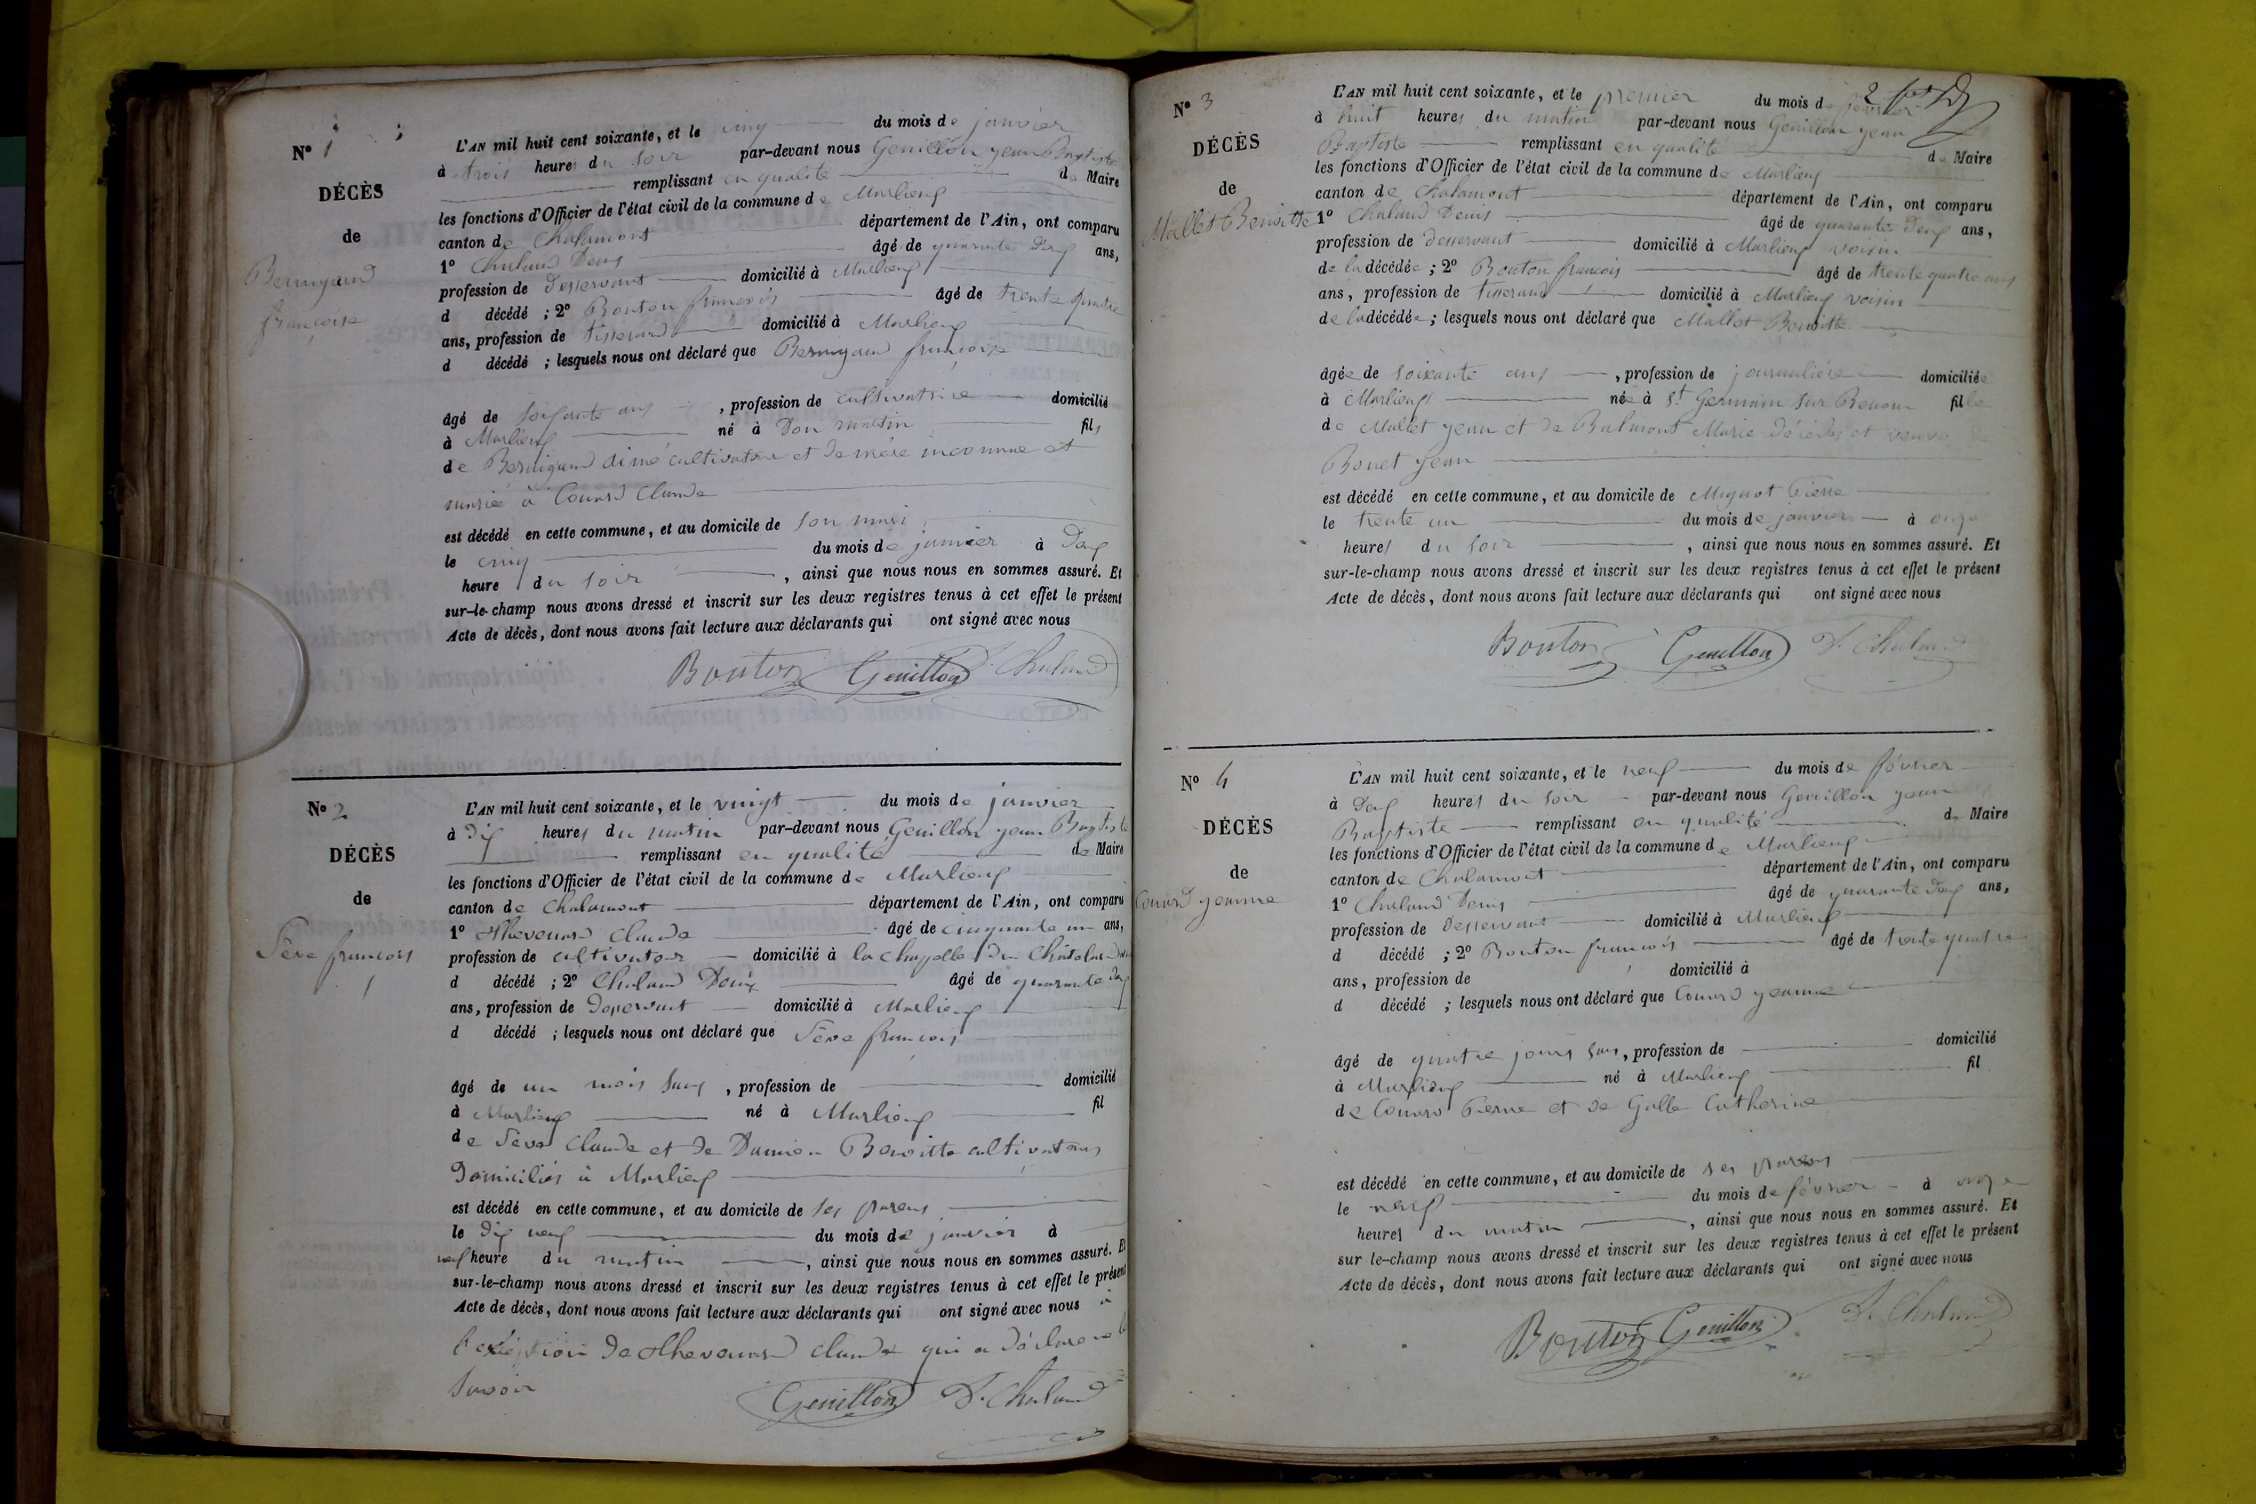 N° 1
DÉCÈS
de
françoise
L'AN mil huit cent soixante, et le cinq du mois de janvier
à trois heures du soir par-devant nous Genillon jean Baptiste
remplissant en qualité de Maire
les fonctions d'Officier de l'état civil de la commune de Marlieux
canton de Chalamont département de l'Ain, ont comparu
1° Chaland Denis âgé de quarante deux ans,
profession de desservant domicilié à Marlieux
d décédé ; 2° Bouton françois âgé de trente quatre
ans, profession de tisserand domicilié à Marlieux
d décédé ; lesquels nous ont déclaré que françoise
âgé de soixante ans , profession de cultivatrice domicilié
à Marlieux né à fils
de cultivateur et de mère inconnue et
mariée à Couard Claude
est décédé en cette commune, et au domicile de son mari
le cinq du mois de janvier à deux
heure du soir , ainsi que nous nous en sommes assuré. Et
sur-le-champ nous avons dressé et inscrit sur les deux registres tenus à cet effet le présent
Acte de décès, dont nous avons fait lecture aux déclarants qui ont signé avec nous
Bouton Genillon D. Chaland
N° 2
DÉCÈS
de
Sève françois
L'AN mil huit cent soixante, et le vingt du mois de janvier
à dix heures du matin par-devant nous Genillon jean Baptiste
remplissant en qualité de Maire
les fonctions d'Officier de l'état civil de la commune de Marlieux
canton de Chalamont département de l'Ain, ont comparu
1° Thevenard Claude âgé de cinquante un ans,
profession de cultivateur domicilié à la Chapelle du Châtelard
d décédé ; 2° Chaland Denis âgé de quarante deux
ans, profession de desservant domicilié à Marlieux
d décédé ; lesquels nous ont déclaré que Sève françois
âgé de un mois sans , profession de domicilié
à Marlieux né à Marlieux fil
de Sève Claude et de Damien Benoitte cultivateurs
domiciliés à Marlieux
est décédé en cette commune, et au domicile de ses parens
le dix neuf du mois de janvier à
neuf heure du matin , ainsi que nous nous en sommes assuré. Et
sur-le-champ nous avons dressé et inscrit sur les deux registres tenus à cet effet le présent
Acte de décès, dont nous avons fait lecture aux déclarants qui ont signé avec nous à
l'exception de Thevenard Claude qui a déclaré ne le
savoir
Genillon D. Chaland
2
N° 3
DÉCÈS
de
Mallet Benoitte
L'AN mil huit cent soixante, et le premier du mois de février
à huit heures du matin par-devant nous Genillon jean
Baptiste remplissant en qualité de Maire
les fonctions d'Officier de l'état civil de la commune de Marlieux
canton de Chalamont département de l'Ain, ont comparu
1° Chaland Denis âgé de quarante deux ans,
profession de desservant domicilié à Marlieux voisin
de la décédée ; 2° Bouton françois âgé de trente quatre ans
ans, profession de tisserand domicilié à Marlieux voisin
de la décédée ; lesquels nous ont déclaré que Mallet Benoitte
âgée de soixante ans , profession de journalière domiciliée
à Marlieux née à St Germain sur Renom fille
de Mallet jean et de Balmont Marie décédés et veuve de
Bouet jean
est décédé en cette commune, et au domicile de Mignot Pierre
le trente un du mois de janvier à onze
heures du soir , ainsi que nous nous en sommes assuré. Et
sur-le-champ nous avons dressé et inscrit sur les deux registres tenus à cet effet le présent
Acte de décès, dont nous avons fait lecture aux déclarants qui ont signé avec nous
Bouton Genillon D. Chaland
N° 4
DÉCÈS
de
Couard jeanne
L'AN mil huit cent soixante, et le neuf du mois de février
à deux heures du soir par-devant nous Genillon jean
Baptiste remplissant en qualité de Maire
les fonctions d'Officier de l'état civil de la commune de Marlieux
canton de Chalamont département de l'Ain, ont comparu
1° Chaland Denis âgé de quarante deux ans,
profession de desservant domicilié à Marlieux
d décédé ; 2° Bouton françois âgé de trente quatre
ans, profession de domicilié à
d décédé ; lesquels nous ont déclaré que Couard jeanne
âgé de quatre jours sans , profession de domicilié
à Marlieux né à Marlieux fil
de Couard Pierre et de Galle Catherine
est décédé en cette commune, et au domicile de ses parens
le neuf du mois de février à onze
heures du matin , ainsi que nous nous en sommes assuré. Et
sur le-champ nous avons dressé et inscrit sur les deux registres tenus à cet effet le présent
Acte de décès, dont nous avons fait lecture aux déclarants qui ont signé avec nous
Bouton Genillon D. Chaland